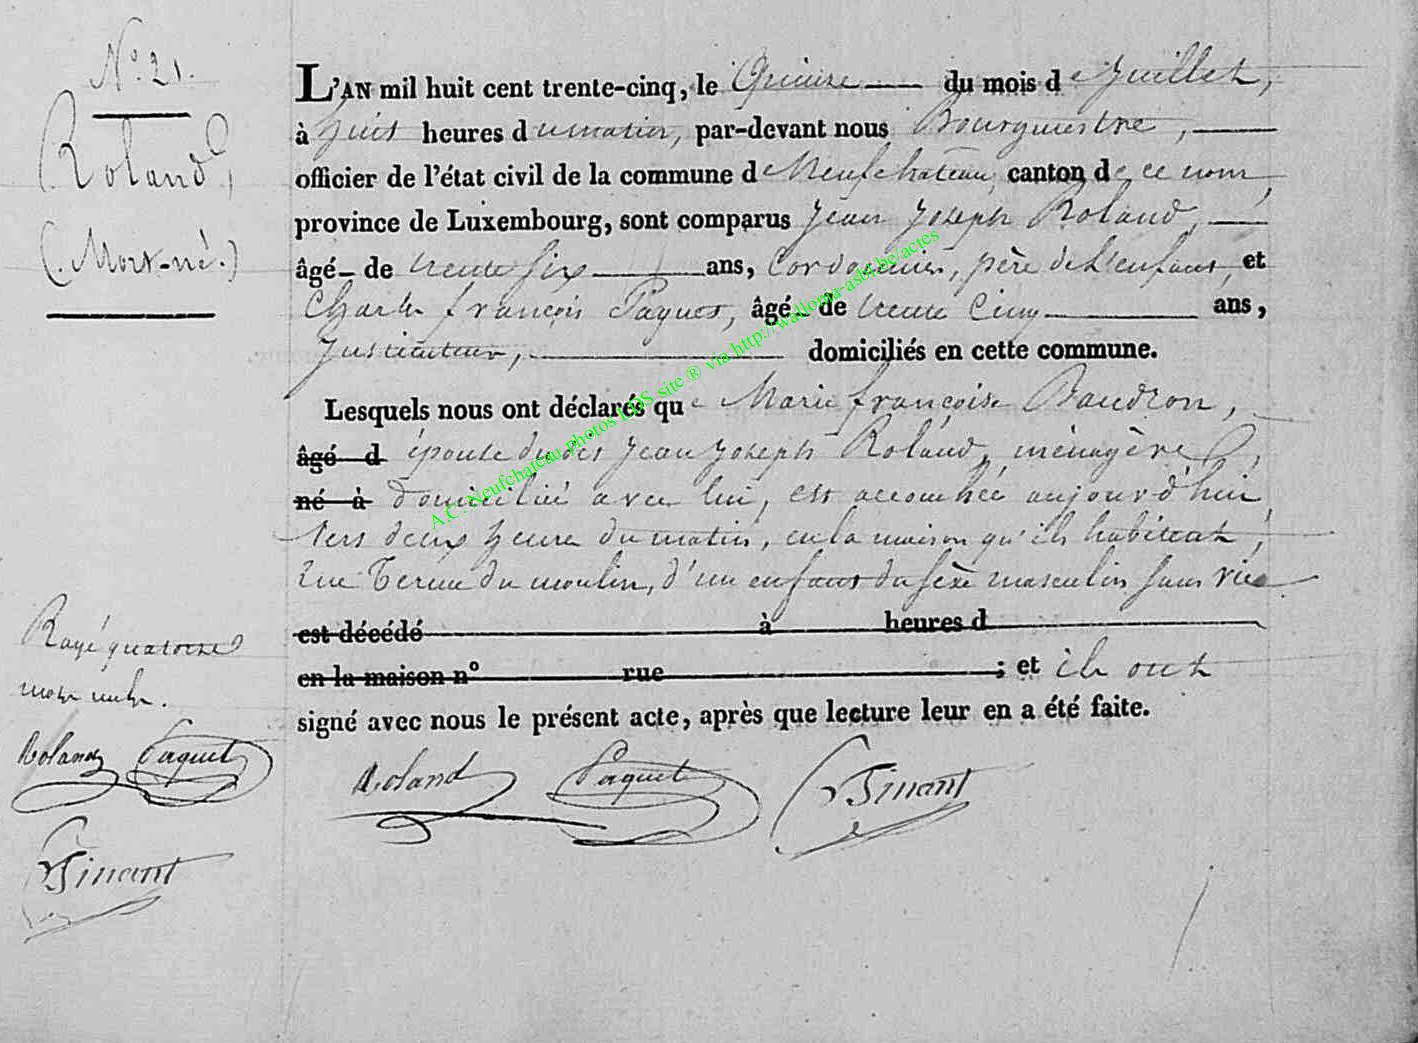 N° 21.
Roland,
(Mort-né.)
L'AN mil huit cent trente-cinq, le Quinze du mois de Juillet,
à huit heures du matin, par-devant nous Bourgmestre,
officier de l'état civil de la commune de Neufchateau, canton de ce nom,
province de Luxembourg, sont comparus Jean Joseph Roland,
âgé de trente six ans, Cordonnier, père de l'enfant, et
Charles françois Paquet, âgé de trente cinq ans,
Instituteur, domiciliés en cette commune.
Lesquels nous ont déclarés que Marie françoise Baudron,
âgé d épouse du dit Jean Joseph Roland, ménagère,
né à domiciliée avec lui, est accouchée aujourd'hui
vers deux heure du matin, en la maison qu'ils habitent,
rue Terme du moulin, d'un enfant du sexe masculin sans vie
est décédé à heures d
en la maison n° rue ; et ils ont
signé avec nous le présent acte, après que lecture leur en a été faite.
Roland Paquet Tinant
Rayé quatorze
mots nuls.
Roland Paquet
Tinant
A.C. Neufchateau photos LDS site ® via http://wallonia-asbl.be/actes